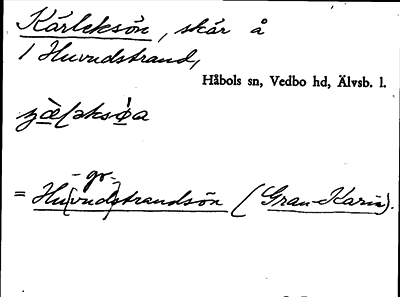 Kärleksön, skär å
/ Huvudstrand,
Håbols sn, Vedbo hd, Älvsb. l.
-gr-
= Hu[vud]strandsön (Gran-Karin).